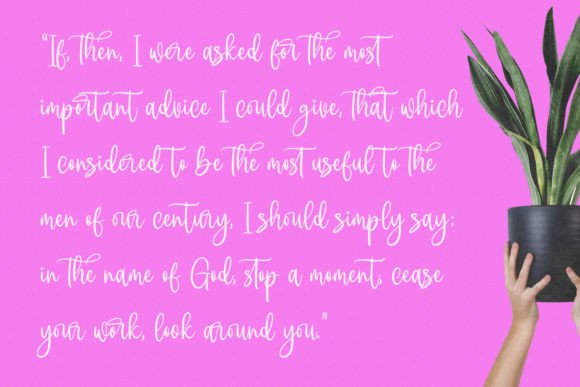 “If, then, I were asked for the most
important advice I could give, that which
I considered to be the most useful to the
men of our century, I should simply say:
in the name of God, stop a moment, cease
your work, look around you.”